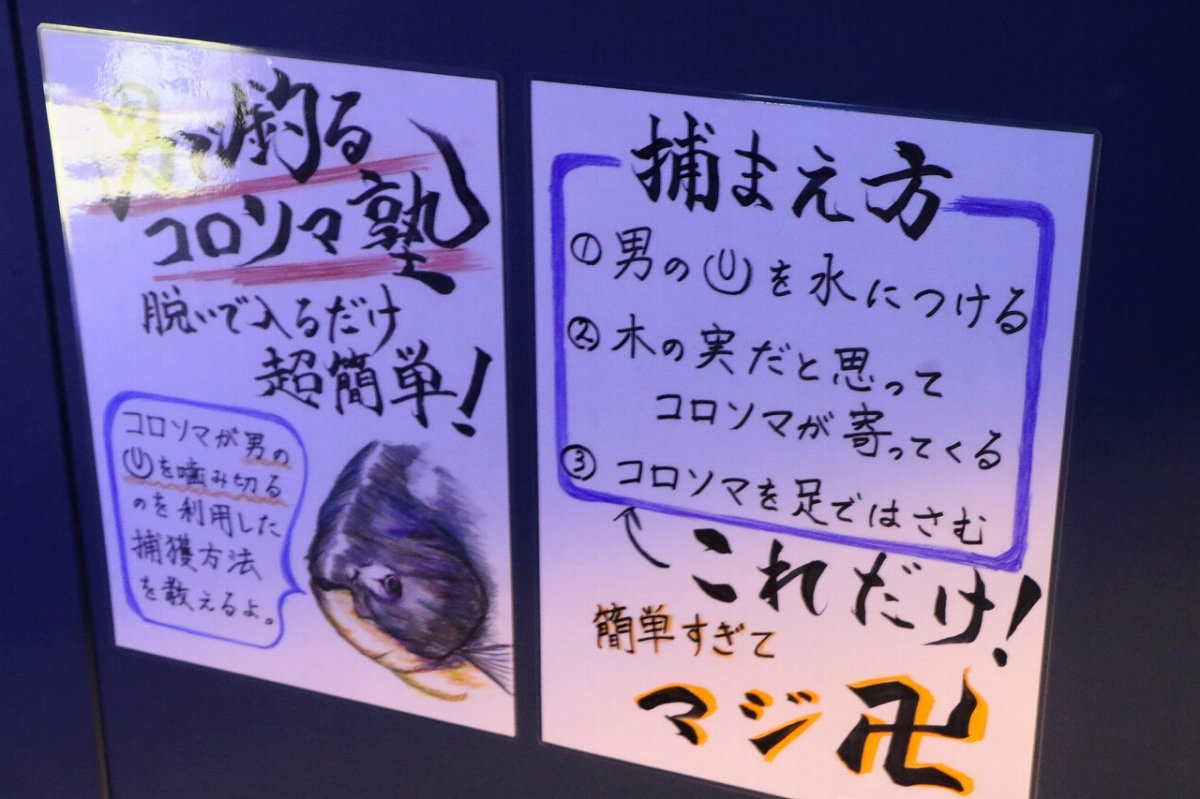 男で釣る
コロソマ塾
脱いで入るだけ
超簡単!
コロソマが男の
を噛み切る
のを利用した
捕獲方法
を教えるよ。
捕まえ方
① 男の を水につける
② 木の実だと思って
コロソマが寄ってくる
③ コロソマを足ではさむ
これだけ!
簡単すぎて
マジ卍